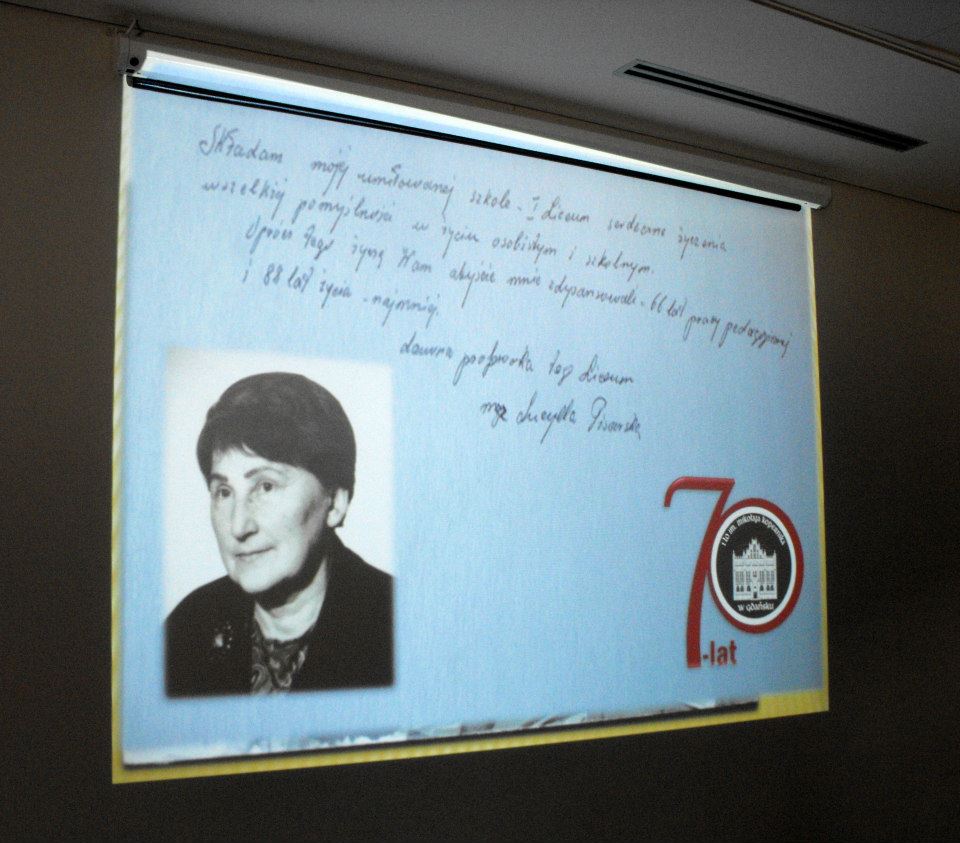 Składam mojej umiłowanej szkole - I Liceum serdeczne życzenia
wszelkiej pomyślności w życiu osobistym i szkolnym.
Oprócz tego życzę Wam abyście mnie zdystansowali - 66 lat pracy pedagogicznej
i 88 lat życia - najmniej.
dawna profesorka tego Liceum
mgr Lucylla Pisarska
70
-lat
I LO im. Mikołaja Kopernika
w Gdańsku